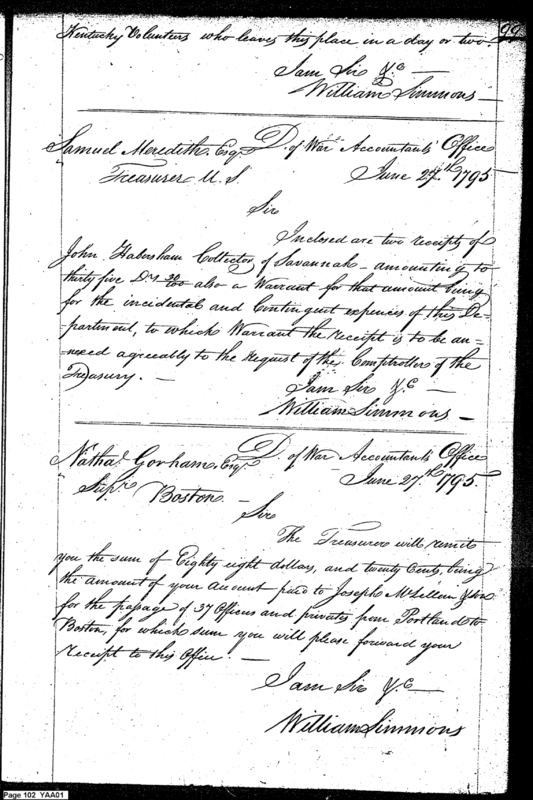 99
Kentucky Volunteers who leaves this place in a day or two.
I am Sir &c —
William Simmons —
Samuel Meredith Esqr. D. of War Accountants Office
Treasurer U. S. June 27th. 1795
Sir
Inclosed are two receipts of
John Habersham Collector of Savannah - amounting to
thirty five Drs. also a Warrant for that amount being
for the incidental and Contingent expences of this De-
partment, to which Warrant the receipt is to be an=
nexed agreeably to the request of the Comptroller of the
Treasury. —
I am Sir &c —
William Simmons —
Nathal. Gorham, Esqr. D. of War Accountants Office
Supr. Boston — June 27th. 1795.
Sir
The Treasurer will remit
you the sum of Eighty eight dollars, and twenty Cents, being
the amount of your account paid to Joseph McLellan & Son
for the passage of 37 Officers and privates from Portland to
Boston, for which sum you will please forward your
receipt to this Office. —
I am Sir &c —
William Simmons
Page 102 YAA01